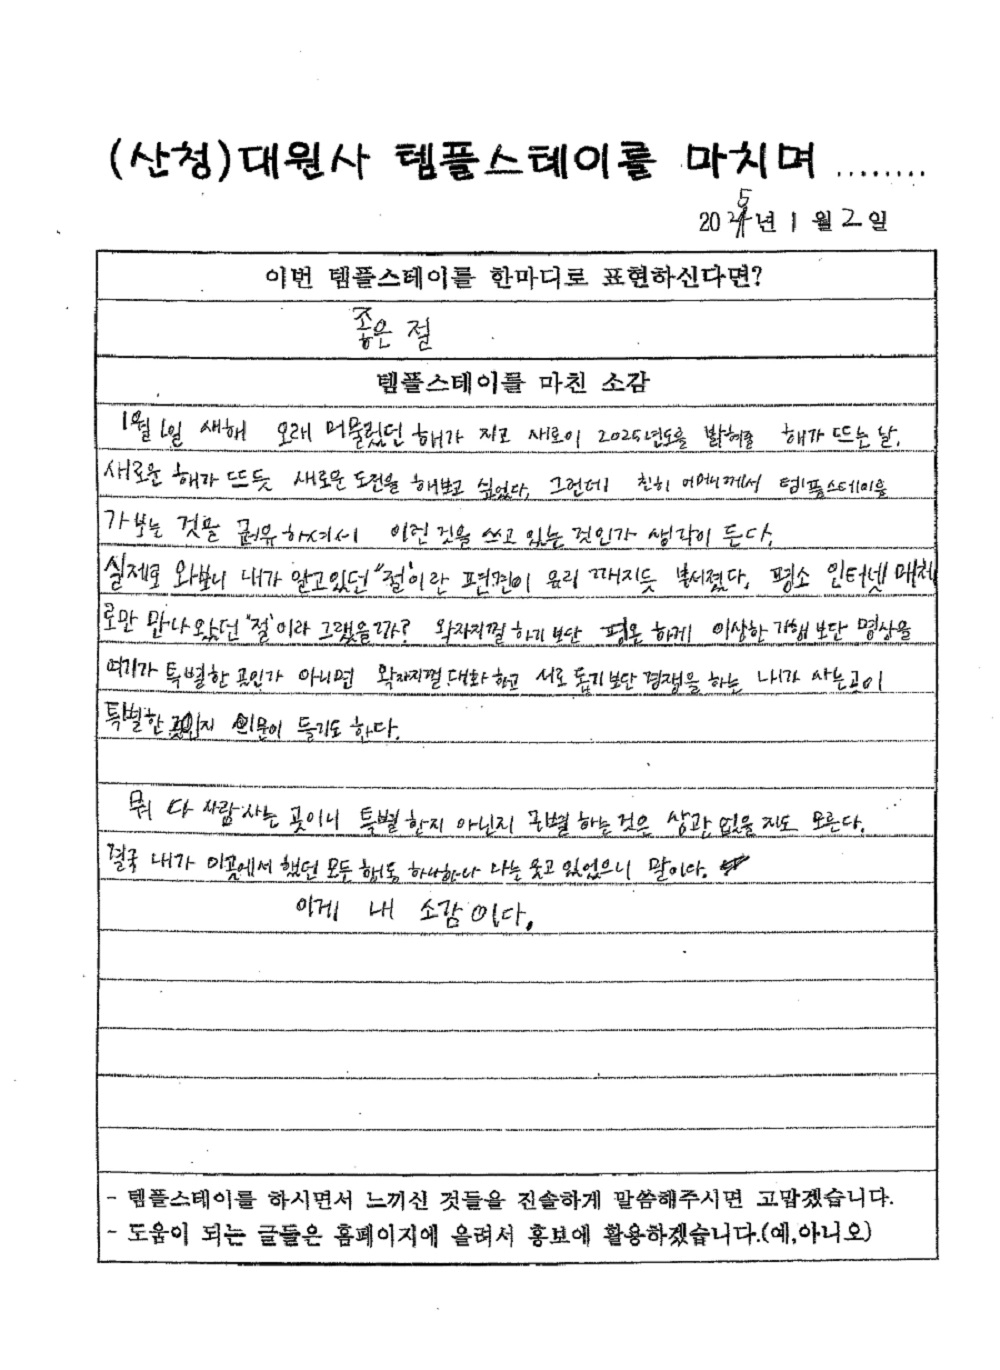 (산청)대원사 템플스테이를 마치며........
2025년 1월 2일
이번 템플스테이를 한마디로 표현하신다면?
좋은 절
템플스테이를 마친 소감
1월 1일 새해 오래 머물렀던 해가 지고 새로이 2025년도를 밝혀줄 해가 뜨는 날.
새로운 해가 뜨듯 새로운 도전을 해보고 싶었다. 그런데 친히 어머니께서 템플스테이를
가보는 것을 권유하셔서 이런 것을 쓰고 있는 것인가 생각이 든다.
실제로 와보니 내가 알고있던 "절"이란 편견이 유리 깨지듯 부서졌다. 평소 인터넷 매체
로만 만나왔던 "절"이라 그랬을까? 왁자지껄 하기 보단 평온 하게 이상한 기행 보단 명상을
여기가 특별한 곳인가 아니면 왁자지껄 대화하고 서로 돕기보단 경쟁을 하는 내가 사는곳이
특별한 곳인지 의문이 들기도 한다.
뭐 다 사람 사는 곳이니 특별 한지 아닌지 구별 하는 것은 상관 없을 지도 모른다.
결국 내가 이곳에서 했던 모든 행동 하나하나 나는 웃고 있었으니 말이다.
이게 내 소감이다.
- 템플스테이를 하시면서 느끼신 것들을 진솔하게 말씀해주시면 고맙겠습니다.
- 도움이 되는 글들은 홈페이지에 올려서 홍보에 활용하겠습니다.(예,아니오)